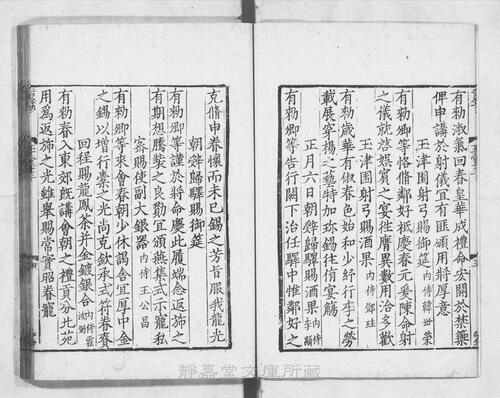 有勑淑氣回春皇華成禮命宏開於禁籞
俾申講於射儀宜有匪頒用將厚意
玉津園射弓賜御筵 内侍韓世榮
有勑卿等恪脩鄰好祗慶春元爰陳命射
之儀就啓娛賓之宴往膺異數用洽多歡
玉津園射弓賜酒果 内侍鄧珪
有勑歲華有俶春色始和少紓行李之勞
載展穿楊之藝特加珎錫往侑宴觴
正月六日朝辭歸驛賜酒果 内侍李
有勑卿等告行闕下治任驛中惟鄰好之
克脩申眷懷而未已錫之芳旨服我龍光
朝辭歸驛賜御筵
有勑卿等謹於將命慶此履端念返斾之
有期想騰裝之良勤宜頒燕集式示寵私
密賜使副大銀器 内侍王公昌
有勑卿等來會春朝少休謁舍宜厚中金
之錫以增行橐之光尚克欽承式符眷眷
回程賜龍鳳茶并金鍍銀合 内侍
有勑春入東郊旣講會朝之禮貢分北苑
用爲返斾之光雖舉賜常實昭眷寵
靜嘉堂文庫所藏